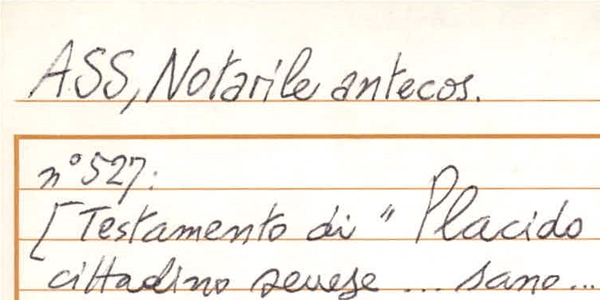 ASS, Notarile antecos.
n° 527:
[Testamento di " Placido
cittadino senese ... sano...